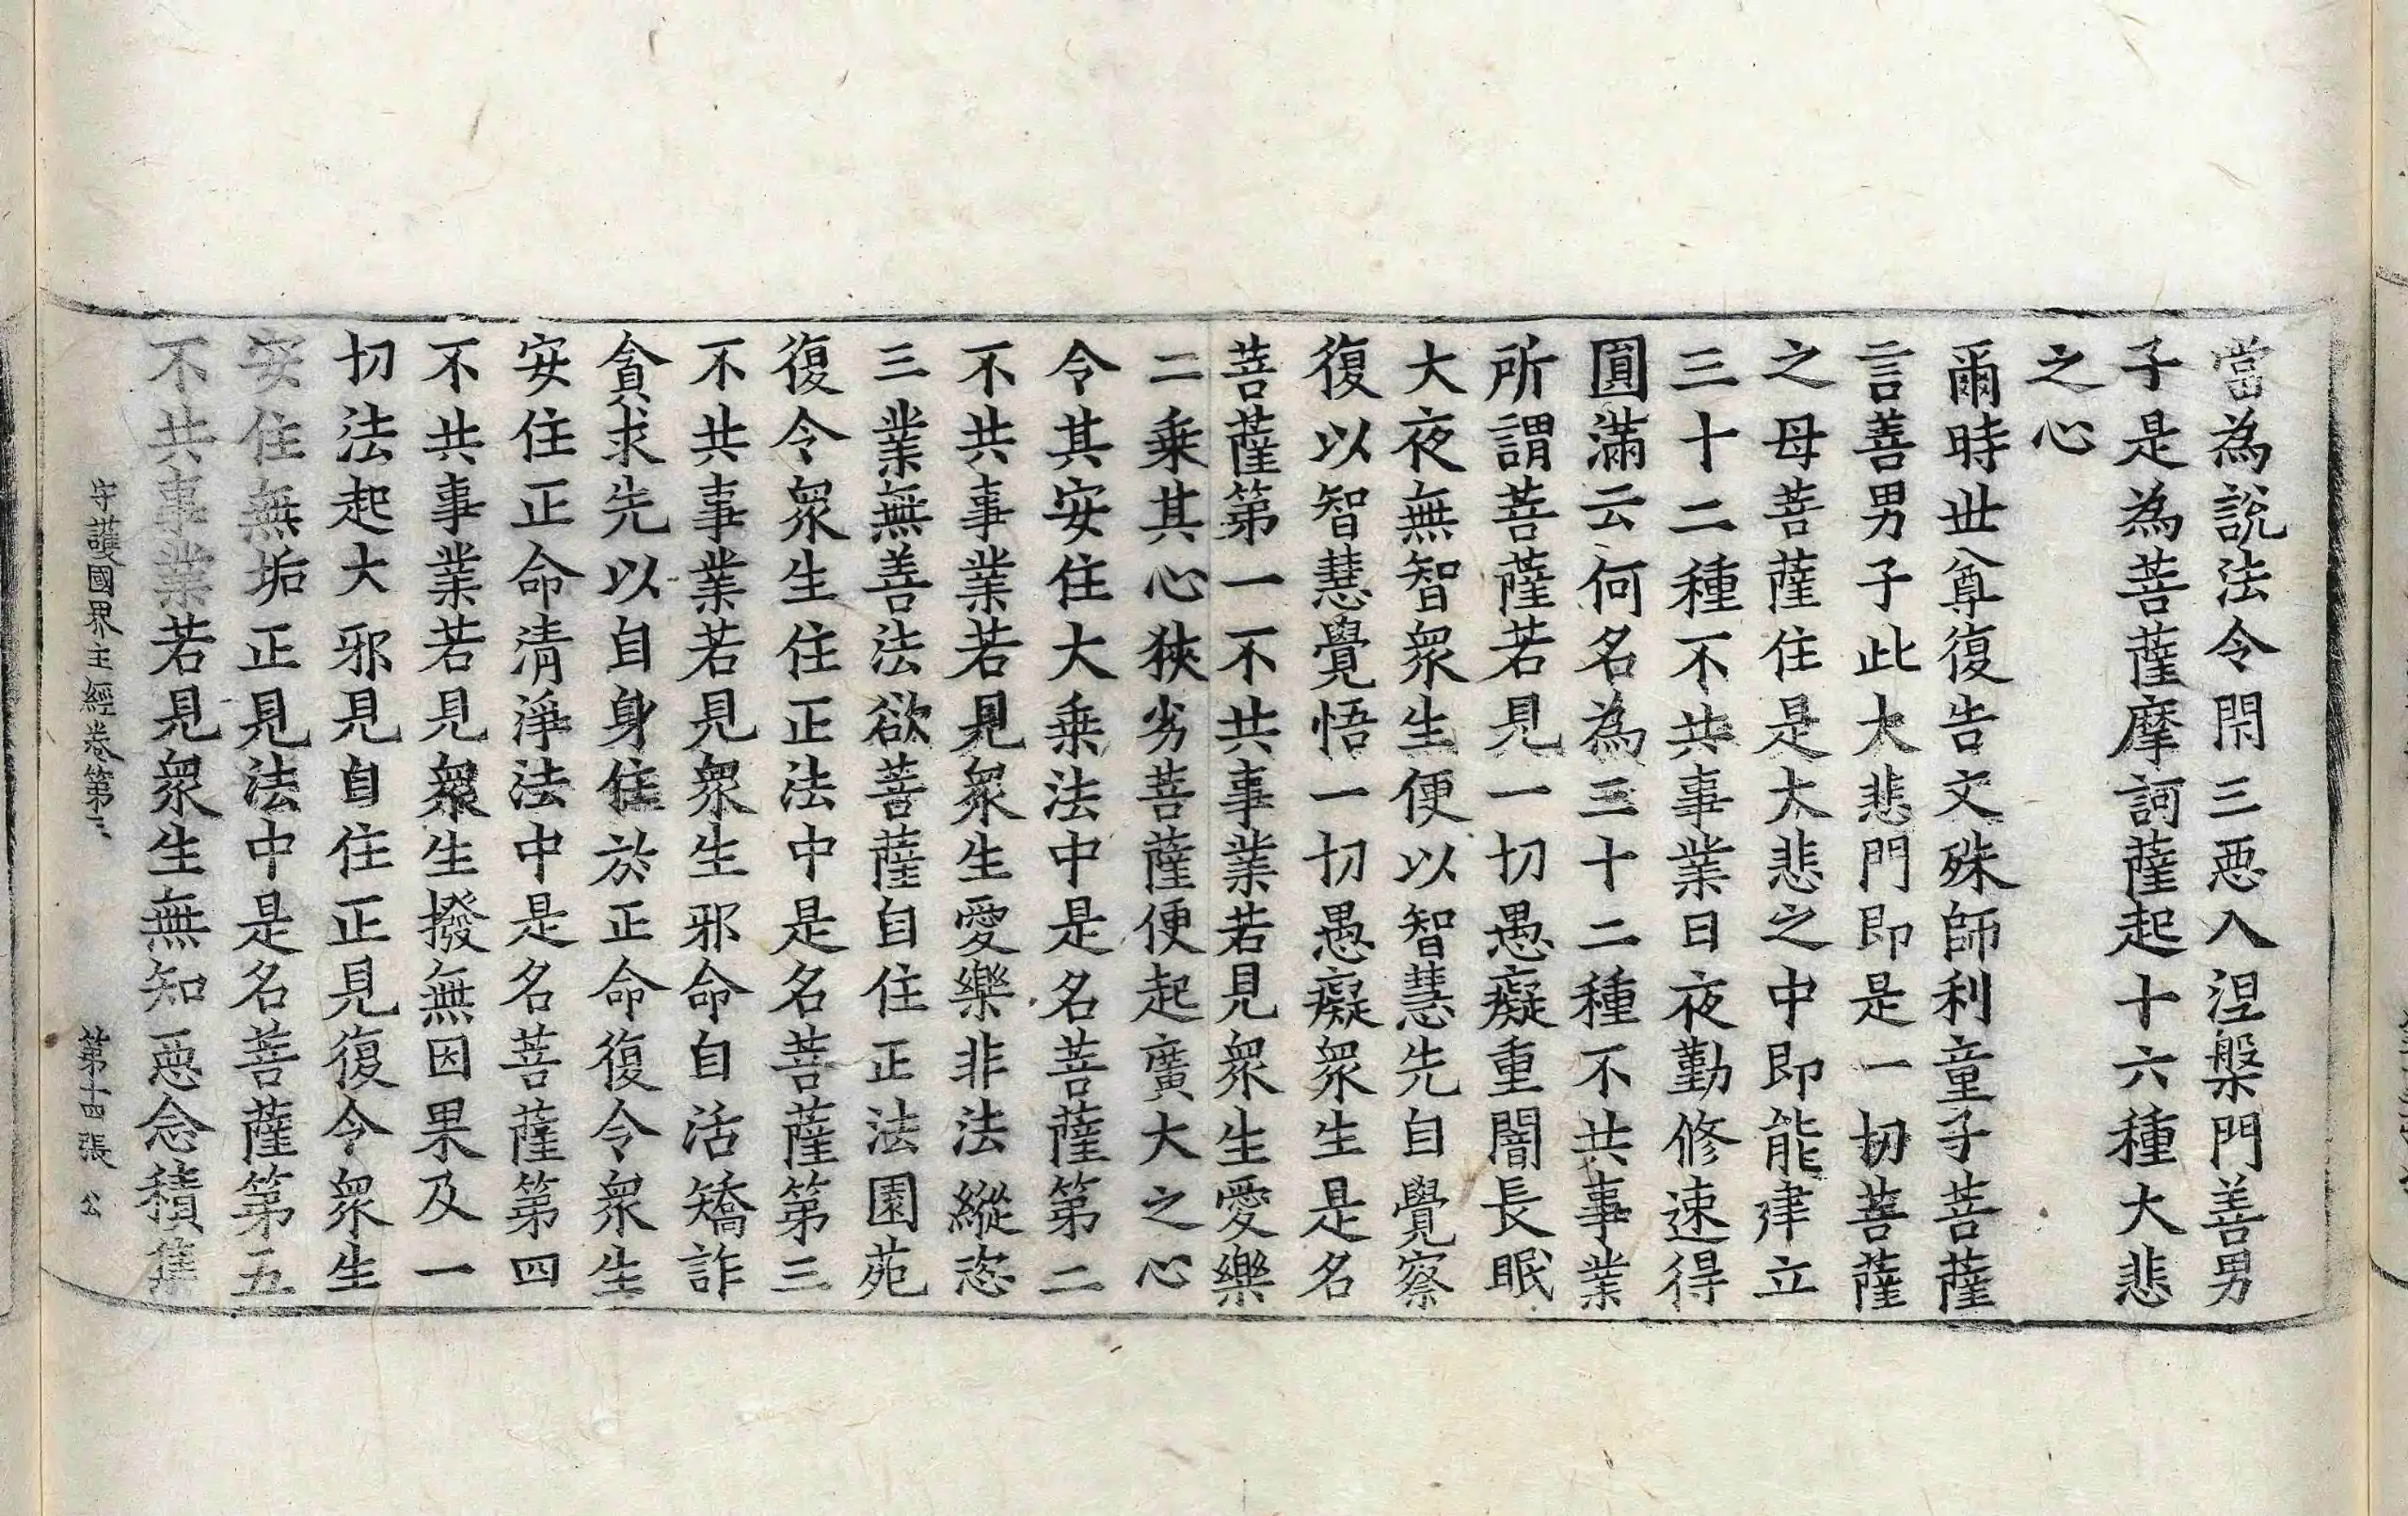 當為說法令閇三惡入涅槃門善男
子是為菩薩摩訶薩起十六種大悲
之心
爾時世尊復告文殊師利童子菩薩
言善男子此大悲門即是一切菩薩
之母菩薩住是大悲之中即能建立
三十二種不共事業日夜勤修速得
圓滿云何名為三十二種不共事業
所謂菩薩若見一切愚癡重闇長眠
大夜無智眾生便以智慧先自覺察
復以智慧覺悟一切愚癡眾生是名
菩薩第一不共事業若見眾生愛樂
二乗其心狹劣菩薩便起廣大之心
令其安住大乗法中是名菩薩第二
不共事業若見眾生愛樂非法縱恣
三業無善法欲菩薩自住正法園苑
復令眾生住正法中是名菩薩第三
不共事業若見眾生邪命自活矯詐
貪求先以自身住於正命復令眾生
安住正命清淨法中是名菩薩第四
不共事業若見眾生撥無因果及一
切法起大邪見自住正見復令眾生
安住無垢正見法中是名菩薩第五
不共事業若見眾生無知惡念積集
守護國界主經卷第三 第十四張 公